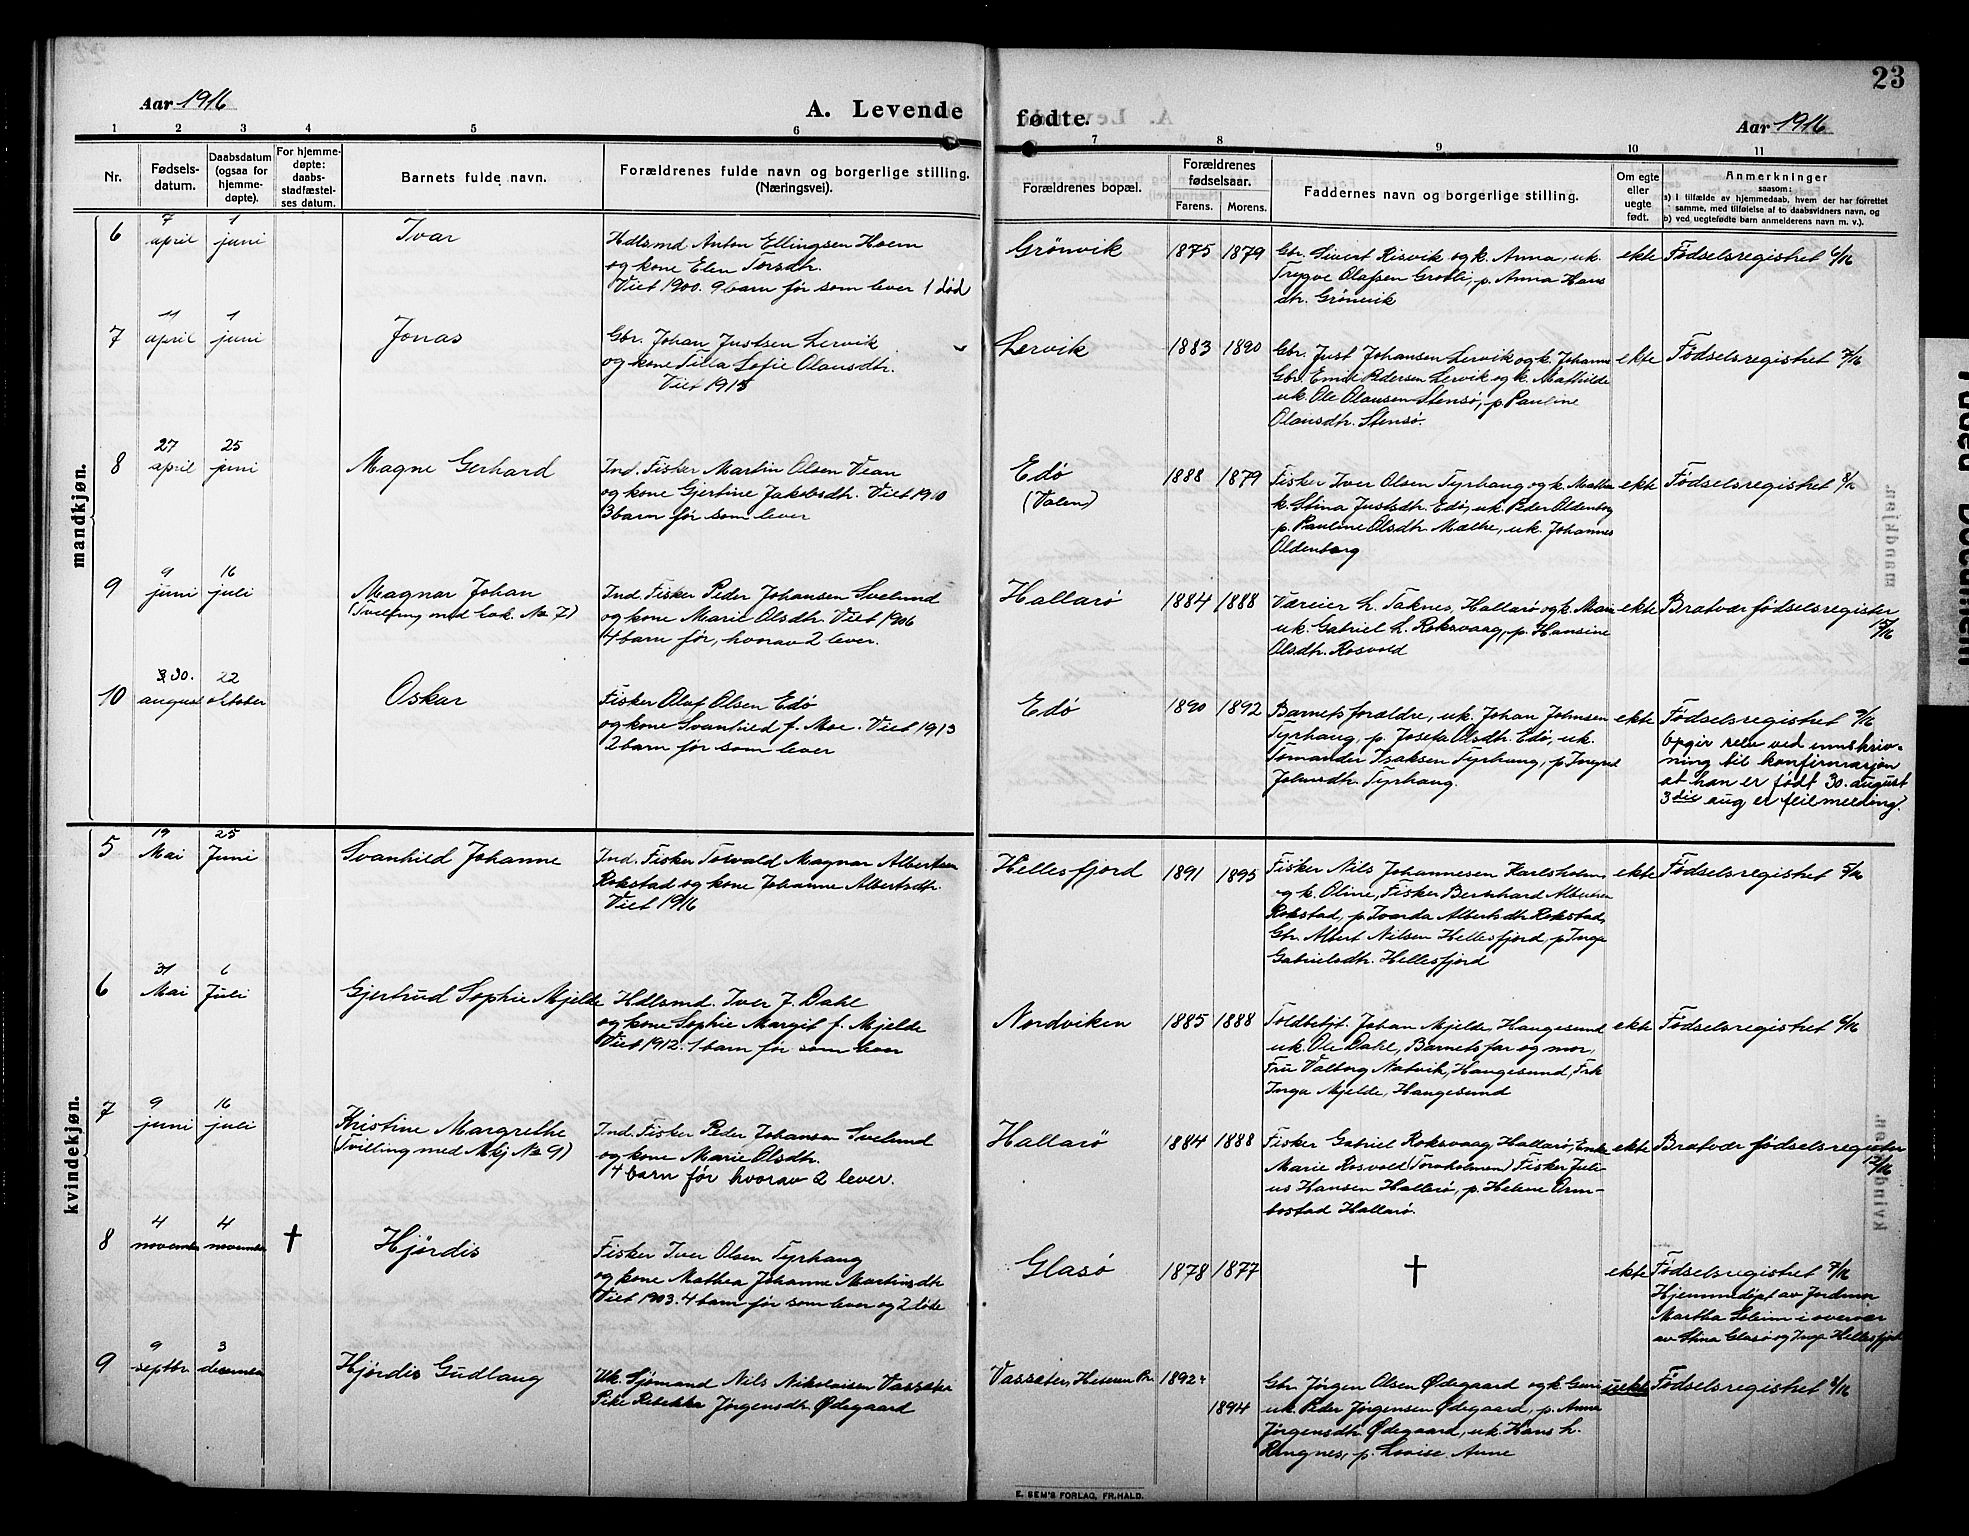 23
Aar 1916
A. Levende fødte.
Aar 1916
1 2 3 4 5 6 7 8 9 10 11
Nr.
Fødsels-
datum.
Daabsdatum
(ogsaa for
hjemme-
døpte).
For hjemme-
døpte:
daabs-
stadfæstel-
ses datum.
Barnets fulde navn.
Forældrenes fulde navn og borgerlige stilling.
(Næringsvei).
Forældrenes bopæl.
Forældrenes
fødselsaar.
Farens. Morens.
Faddernes navn og borgerlige stilling.
Om egte
eller
uegte
født.
Anmerkninger
saasom:
a) I tilfælde av hjemmedaab, hvem der har forrettet
samme, med tilføielse af to daabsvidners navn, og
b) ved uegtefødte barn anmelderens navn m. v.).
mandkjøn.
6
7 april
1 juni
Ivar
Hdlsmd Anton Ellingsen Hoem
og kone Elen Torsdtr.
Viet 1900. 9 barn før som lever 1 død
Grönvik
1875 1879
Gbr. Sivert Risvik og k. Anna, uk.
Trygve Olafsen Grotli, p. Anna Hans
dtr. Grönvik
ekte
Fødselsregistret 6/16
7
11 april
1 juni
Jonas
Gbr. Johan Justsen Lervik
og kone Tilla Sofie Olausdtr.
Viet 1915
Lervik
1883 1890
Gbr. Just Johansen Lervik og k. Johanne
Gbr. Emil Pedersen Lervik og k. Mathilde
uk. Ole Olausen Stensø, p. Pauline
Olausdtr. Stensø.
ekte
Fødselsregistret 7/16
8
27 april
25 juni
Magne Gerhard
Ind. Fisker Martin Olsen Vean
og kone Gjertine Jakobsdtr. Viet 1910
3 barn før som lever
Edø
(Valen)
1888 1879
Fisker Iver Olsen Tyrhaug og k. Mathea
k. Stina Justsdtr. Edø, uk. Peder Oldenborg
p. Pauline Olsdtr. Mælhe, uk. Johannes
Oldenborg
ekte
Fødselsregistret 8/16
9
9 juni
16 juli
Magnar Johan
(Tvilling med kvk. No 7)
Ind. Fisker Peder Johansen Svelund
og kone Marie Olsdtr. Viet 1906
4 barn før, hvorav 2 lever.
Hallarø
1884 1888
Væreier L. Taknes, Hallarø og k. Marie
uk. Gabriel L. Roksvaag, p. Hansine
Olsdtr. Rosvold
ekte
Bratvær fødselsregister
15/16
10
3 30. august
22 oktober
Oskar
Fisker Olaf Olsen Edø
og kone Svanhild f. Moe. Viet 1913
2 barn før som lever
Edø
1890 1892
Barnets forældre, uk. Johan Johnsen
Tyrhaug, p. Josefa Olsdtr. Edø, uk.
Tomander Isaksen Tyrhaug, p. Ingrid
Johnsdtr. Tyrhaug.
ekte
Fødselsregistret 9/16
Opgir selv ved innskriv-
ning til konfirmasjon
at han er født 30. august
3die aug er feilmelding.
kvindekjøn.
5
19 Mai
25 Juni
Svanhild Johanne
Ind. Fisker Torvald Magnar Albertsen
Rokstad og kone Johanne Albertsdtr.
Viet 1916
Hellesfjord
1891 1895
Fisker Nils Johannesen Karlsholm
og k. Oline, Fisker Bernhard Albertsen
Rokstad, p. Tvarda Albertsdtr. Rokstad,
Gbr. Albert Nilsen Hellesfjord, p. Inga
Gabrielsdtr. Hellesfjord
ekte
Fødselsregistret 5/16
6
31 Mai
6 Juli
Gjertrud Sophie Mjelde
Hdlsmd. Iver J. Dahl
og kone Sophie Margit f. Mjelde
Viet 1912. 1 barn før som lever
Nordviken
1885 1888
Toldbetjt. Johan Mjelde, Haugesund
uk. Ole Dahl, Barnets far og mor,
Fru Valborg Natvik, Haugesund, Frk
Inga Mjelde, Haugesund
ekte
Fødselsregistret 6/16
7
9 juni
16 juli
Kristine Margrethe
(Tvilling med Mkj No 9)
Ind. Fisker Peder Johansen Svelund
og kone Marie Olsdtr.
4 barn før hvorav 2 lever.
Hallarö
1884 1888
Fisker Gabriel Roksvaag, Hallarø, Enke
Marie Rosvold (Tornholmen) Fisker Juli-
us Hansen Hallarø, p. Helene Orm-
bostad Hallarø.
ekte
Bratvær fødselsregister
12/16
8
4 november
4 november
†
Hjørdis
Fisker Iver Olsen Tyrhaug
og kone Mathea Johanne Martinsdtr
Viet 1903. 4 barn før som lever og 2 døde
Glasø
1878 1877
†
ekte
Fødselsregistret 7/16
Hjemmedøpt av Jordmor
Martha Soleim i overvær
av Stina Glasø og Inga Hellesfjord
9
9 septbr.
3 december
Hjørdis Gudlaug
Uk. Sjømand Nils Nikolaisen Vassæter
Pike Rebekka Jørgensdtr. Ødegaard
Vassæter,
1892
1894
Gbr. Jørgen Olsen Ødegaard og k. Guri
uk. Peder Jørgensen Ødegaard, p. Anna
Jørgensdtr. Ødegaard, uk. Hans L.
Ringnes, p. Lovise Aune
uekte
Fødselsregistret 8/16
E. SEM'S FORLAG, FR.HALD.